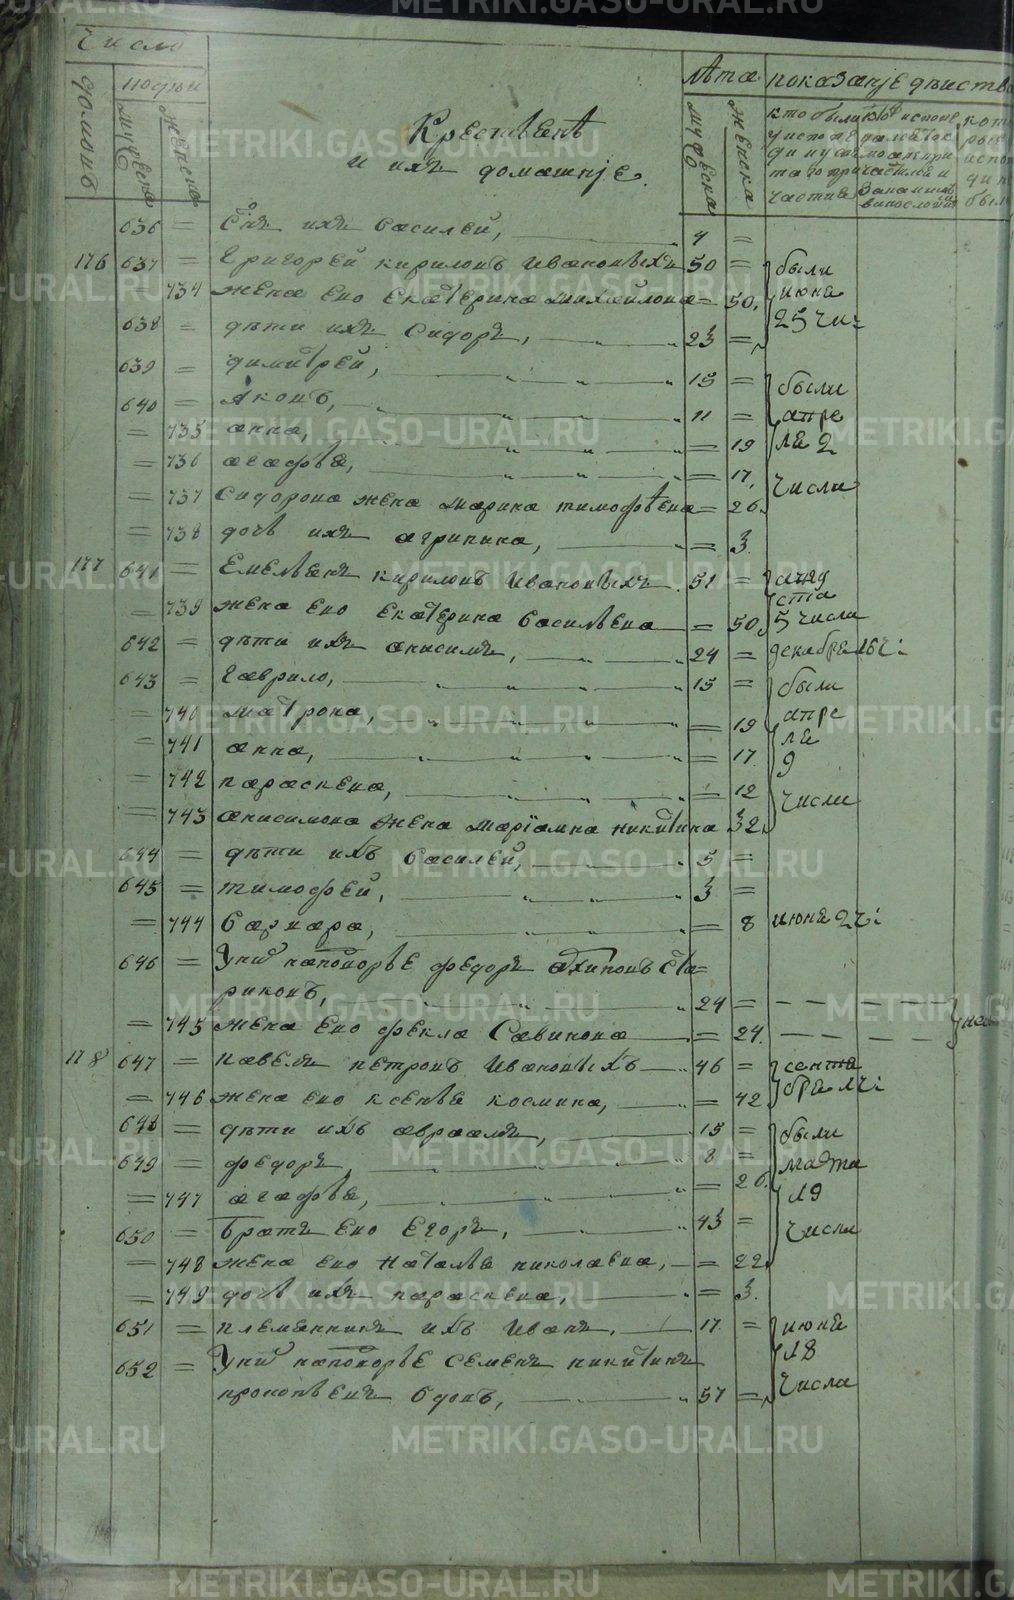 Число
лѣта показанiе дѣиства
домовъ
людеи
мужеска
женска
мужеска
женска
Крестьянѣ
и ихъ домашнiе
636 = Снъ ихъ василей, 4 =
176 637 = Григорей кириловъ Ивановыхъ 50 =
= 734 жена ево екатерина михайлова = 50.
были июня 25 чи:
638 = дѣти ихъ Сидоръ, 23 =
639 = димитрей, 15 =
640 = яковъ, 11 =
= 735 анна, = 19
= 736 агафья, = 17.
= 737 Сидорова жена марина тимофѣева = 26.
= 738 дочь ихъ агрипина, = 3.
были апреля 2 числа
177 641 = Емельянъ кириловъ Ивановыхъ 51 =
= 739 жена ево екатерина васильева = 50.
августа 5 числа
642 = дѣти ихъ анисимъ, 24 = декабря 16 ч:
643 = гаврило, 15 =
= 740 матрона, = 19
= 741 анна, = 17
= 742 параскева, = 12
= 743 анисимова жена марiамна никитина 32.
были апреля 9 числа
644 = дѣти ихъ василей, 5 =
645 = тимофей, 3 =
= 744 варвара, = 8 июня 2 ч:
646 = Унтъ каповорье федоръ архиповъ Ста=
риковъ, 24 =
= 745 жена ево фекла Савинова = 24.
178 647 = павелъ петровъ Ивановыхъ 46 =
= 746 жена ево ксенья космина, = 42
сентября 14:
648 = дѣти ихъ авраамъ, 15 =
649 = федоръ, 8 =
= 747 агафья, = 20.
650 = братъ ево егоръ, 43 =
= 748 жена ево наталья николаева, = 22.
были марта 19 числа
= 749 дочь ихъ параскева, = 3.
651 = племянникъ ихъ иванъ, 17 =
652 = Унтъ каповорье семенъ никитинъ
прокопьевъ вдовъ, 57 =
июня 18 числа
METRIKI.GASO-URAL.RU